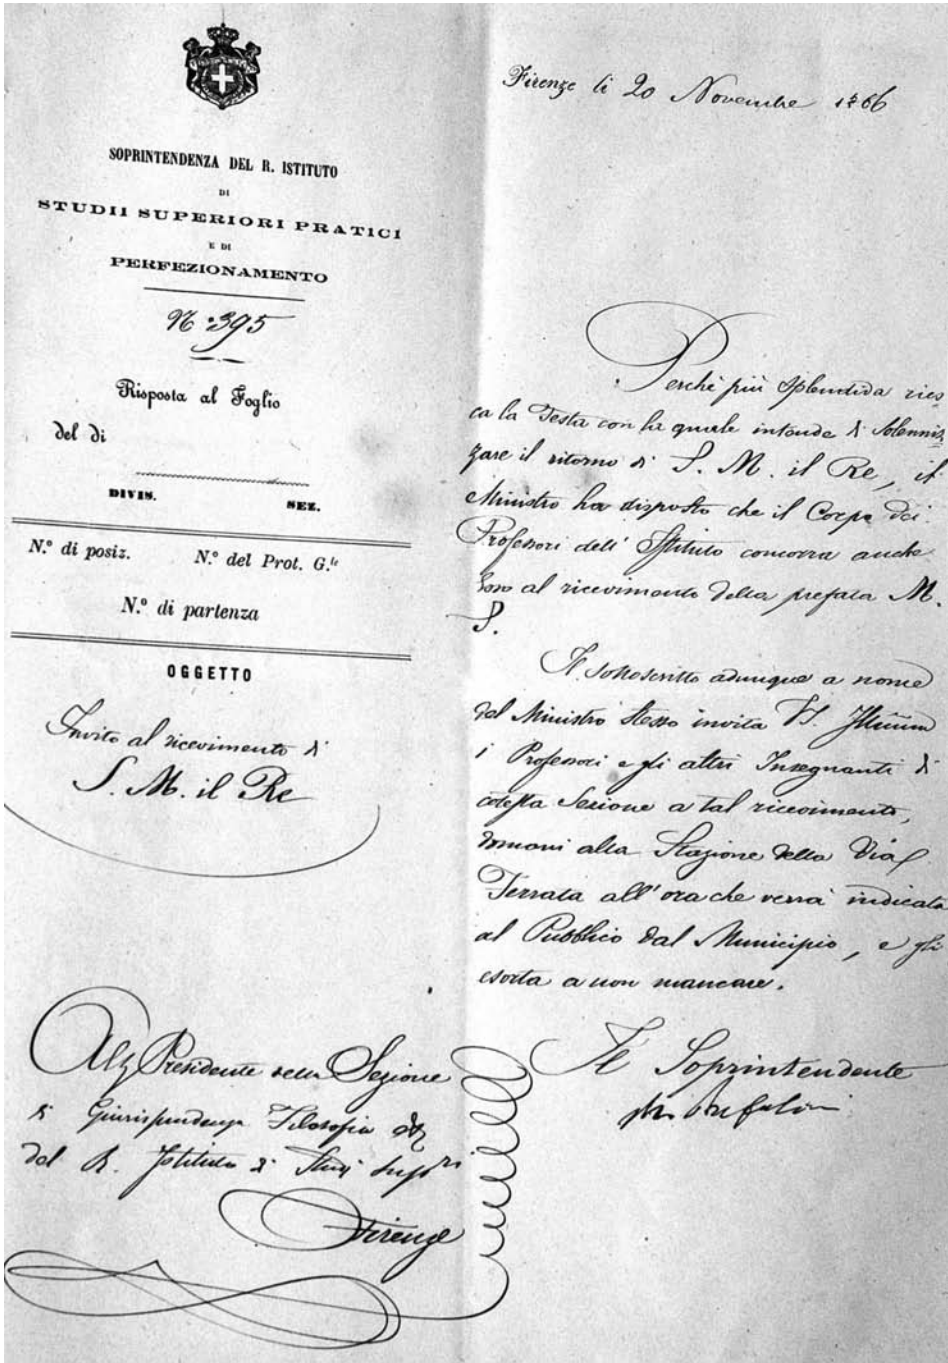 SOPRINTENDENZA DEL R. ISTITUTO
DI
STUDII SUPERIORI PRATICI
E DI
PERFEZIONAMENTO
N.º 395
Risposta al Foglio
del dì
DIVIS. SEZ.
N.º di posiz. N.º del Prot. G.le
N.º di partenza
OGGETTO
Invito al ricevimento di
S. M. il Re
Al Presidente della Sezione
di Giurisprudenza Filosofia
del R. Istituto di Studi Sup.ri
Firenze
Firenze li 20 Novembre 1866
Perchè più splendida ries-
ca la Festa con la quale intende di solenniz-
zare il ritorno di S. M. il Re, il
Ministro ha disposto che il Corpo dei
Professori dell' Istituto concorra anche
al ricevimento della prefata M.
S.
Il sottoscritto adunque a nome
del Ministro stesso invita VS.
i Professori e gli altri Insegnanti di
cotesta Sezione a tal ricevimento,
domani alla Stazione della Via
Ferrata all'ora che verrà indicata
al Pubblico dal Municipio, e gli
esorta a non mancare.
Il Soprintendente